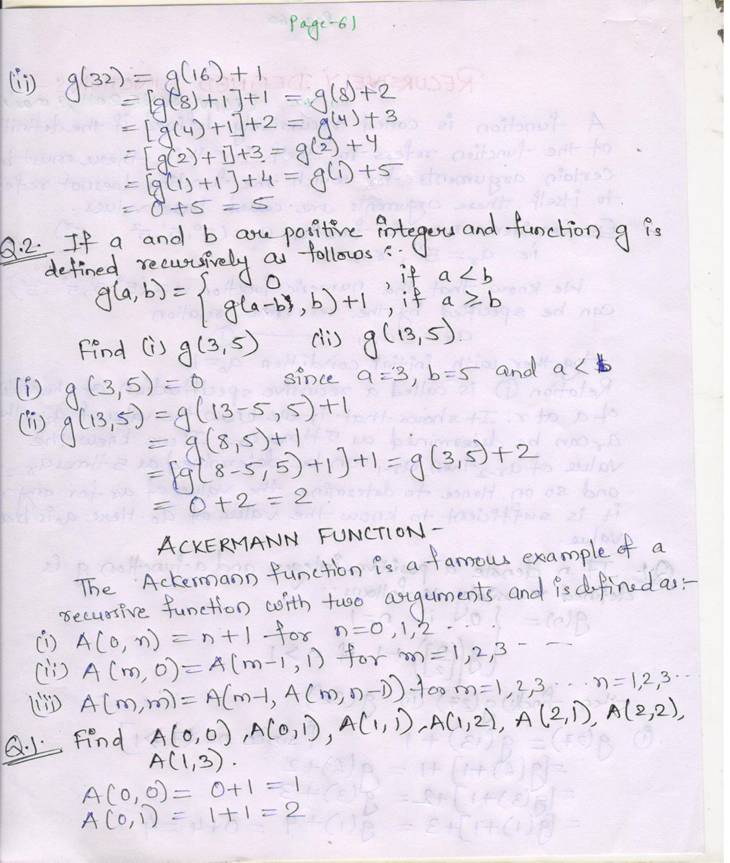 Page-61
(ii) g(32) = g(16) + 1
= [g(8)+1]+1 = g(8)+2
= [g(4)+1]+2 = g(4)+3
= [g(2)+1]+3 = g(2)+4
= [g(1)+1]+4 = g(1)+5
= 0+5 = 5
Q.2. If a and b are positive integers and function g is
defined recursively as follows:-
g(a,b) = { 0 , if a < b
g(a-b, b)+1 , if a ≥ b
Find (i) g(3,5) (ii) g(13,5)
(i) g(3,5) = 0 since a=3, b=5 and a < b
(ii) g(13,5) = g(13-5,5)+1
= g(8,5)+1
= [g(8-5,5)+1]+1 = g(3,5)+2
= 0+2 = 2
ACKERMANN FUNCTION-
The Ackermann function is a famous example of a
recursive function with two arguments and is defined as:-
(i) A(0,n) = n+1 for n=0,1,2 ...
(ii) A(m,0) = A(m-1,1) for m=1,2,3 - -
(iii) A(m,n) = A(m-1, A(m,n-1)) for m=1,2,3 ... n=1,2,3 ...
Q.1. Find A(0,0), A(0,1), A(1,1), A(1,2), A(2,1), A(2,2),
A(1,3).
A(0,0) = 0+1 = 1
A(0,1) = 1+1 = 2